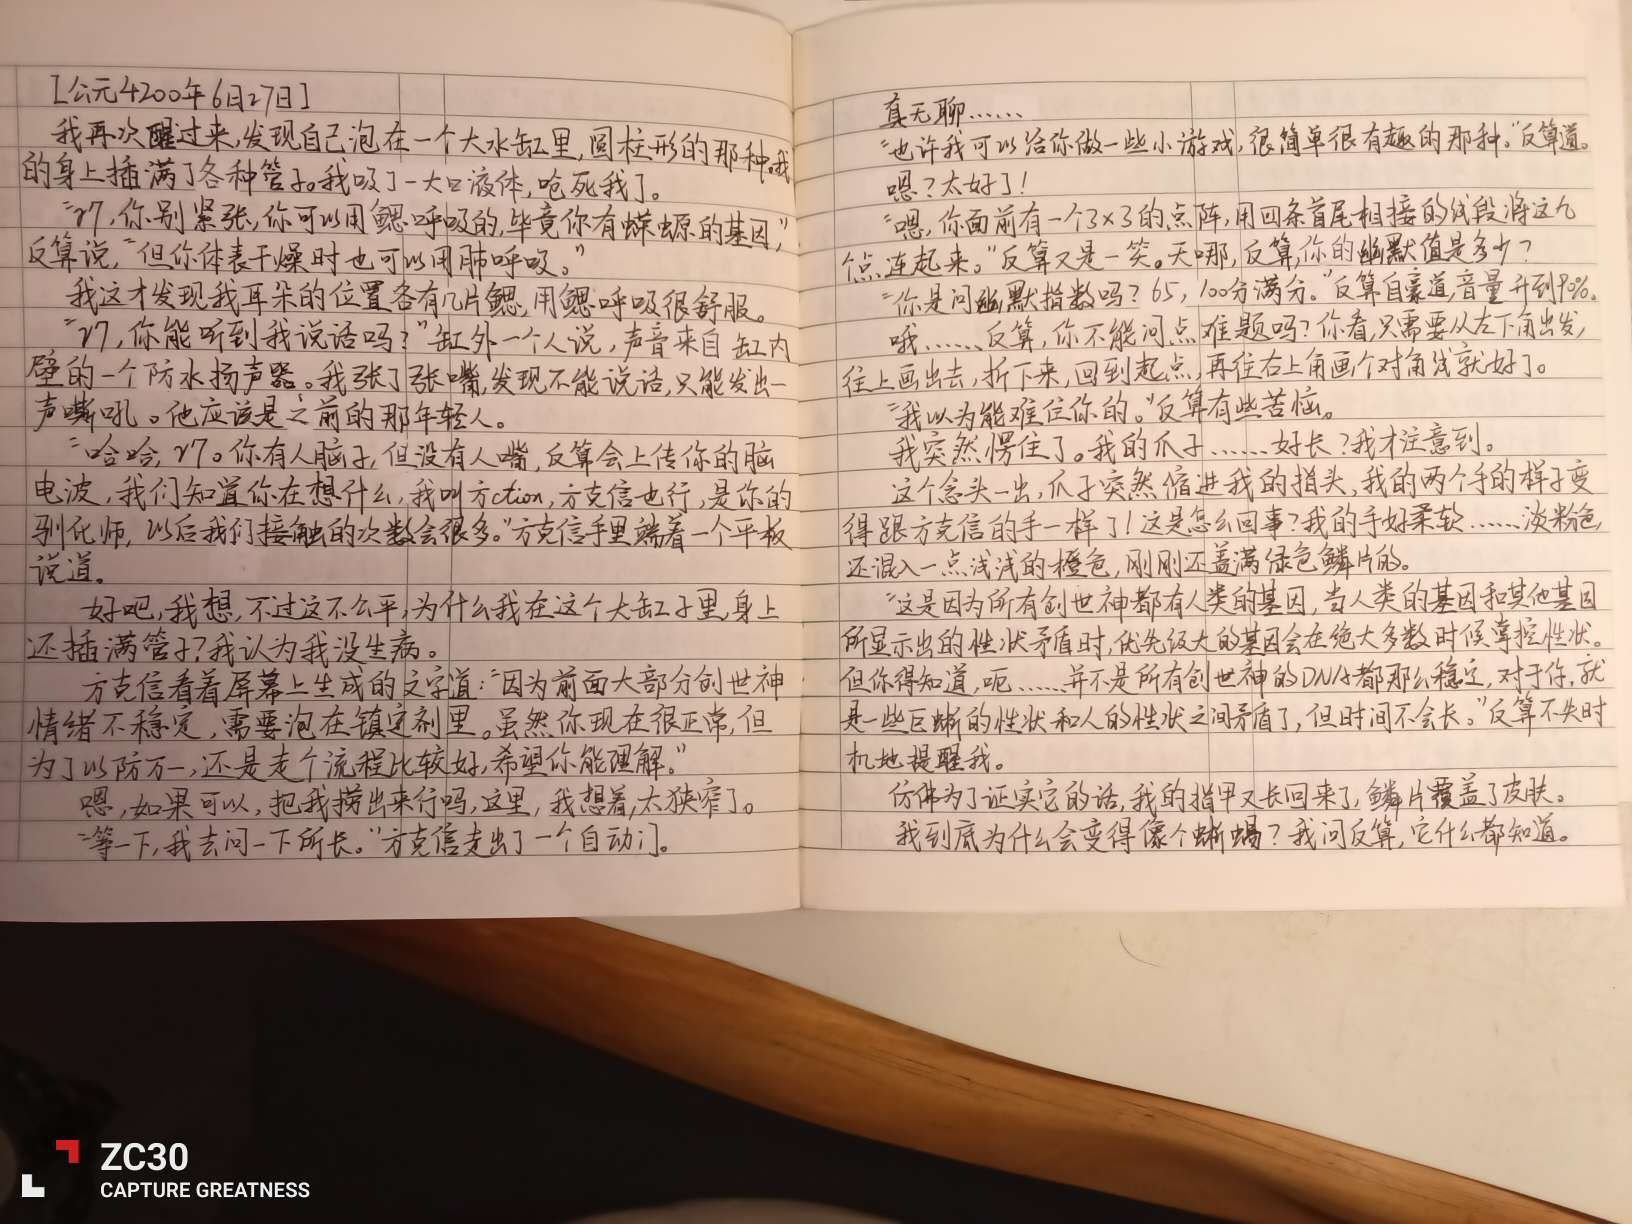 [公元4200年6月27日]
我再次醒过来,发现自己泡在一个大水缸里,圆柱形的那种。我
的身上插满了各种管子。我吸了一大口液体,呛死我了。
“γ7,你别紧张,你可以用鳃呼吸的,毕竟你有蝾螈的基因,”
反算说,“但你体表干燥时也可以用肺呼吸。”
我这才发现我耳朵的位置各有几片鳃,用鳃呼吸很舒服。
“γ7,你能听到我说话吗?”缸外一个人说,声音来自缸内
壁的一个防水扬声器。我张了张嘴,发现不能说话,只能发出一
声嘶吼。他应该是之前的那年轻人。
“哈哈,γ7。你有人脑子,但没有人嘴,反算会上传你的脑
电波,我们知道你在想什么,我叫方ction,方克信也行,是你的
驯化师,以后我们接触的次数会很多。”方克信手里端着一个平板
说道。
好吧,我想,不过这不公平,为什么我在这个大缸子里,身上
还插满管子?我认为我没生病。
方克信看着屏幕上生成的文字道:“因为前面大部分创世神
情绪不稳定,需要泡在镇定剂里。虽然你现在很正常,但
为了以防万一,还是走个流程比较好,希望你能理解。”
嗯,如果可以,把我捞出来行吗,这里,我想着,太狭窄了。
“等一下,我去问一下所长。”方克信走出了一个自动门。
真无聊……
“也许我可以给你做一些小游戏,很简单很有趣的那种。”反算道。
嗯?太好了!
“嗯,你面前有一个3×3的点阵,用四条首尾相接的线段将这九
个点连起来。”反算又是一笑。天哪,反算,你的幽默值是多少?
“你是问幽默指数吗?65,100分满分。”反算自豪道,音量升到90%。
哦……反算,你不能问点难题吗?你看,只需要从左下角出发,
往上画出去,折下来,回到起点,再往右上角画个对角线就好了。
“我以为能难住你的。”反算有些苦恼。
我突然愣住了。我的爪子……好长?我才注意到。
这个念头一出,爪子突然缩进我的指头,我的两个手的样子变
得跟方克信的手一样了!这是怎么回事?我的手好柔软……淡粉色,
还混入一点浅浅的橙色,刚刚还盖满绿色鳞片的。
“这是因为所有创世神都有人类的基因,当人类的基因和其他基因
所显示出的性状矛盾时,优先级大的基因会在绝大多数时候掌控性状。
但你得知道,呃……并不是所有创世神的DNA都那么稳定,对于你,就
是一些巨蜥的性状和人的性状之间矛盾了,但时间不会长。”反算不失时
机地提醒我。
仿佛为了证实它的话,我的指甲又长回来了,鳞片覆盖了皮肤。
我到底为什么会变得像个蜥蜴?我问反算,它什么都知道。
ZC30
CAPTURE GREATNESS